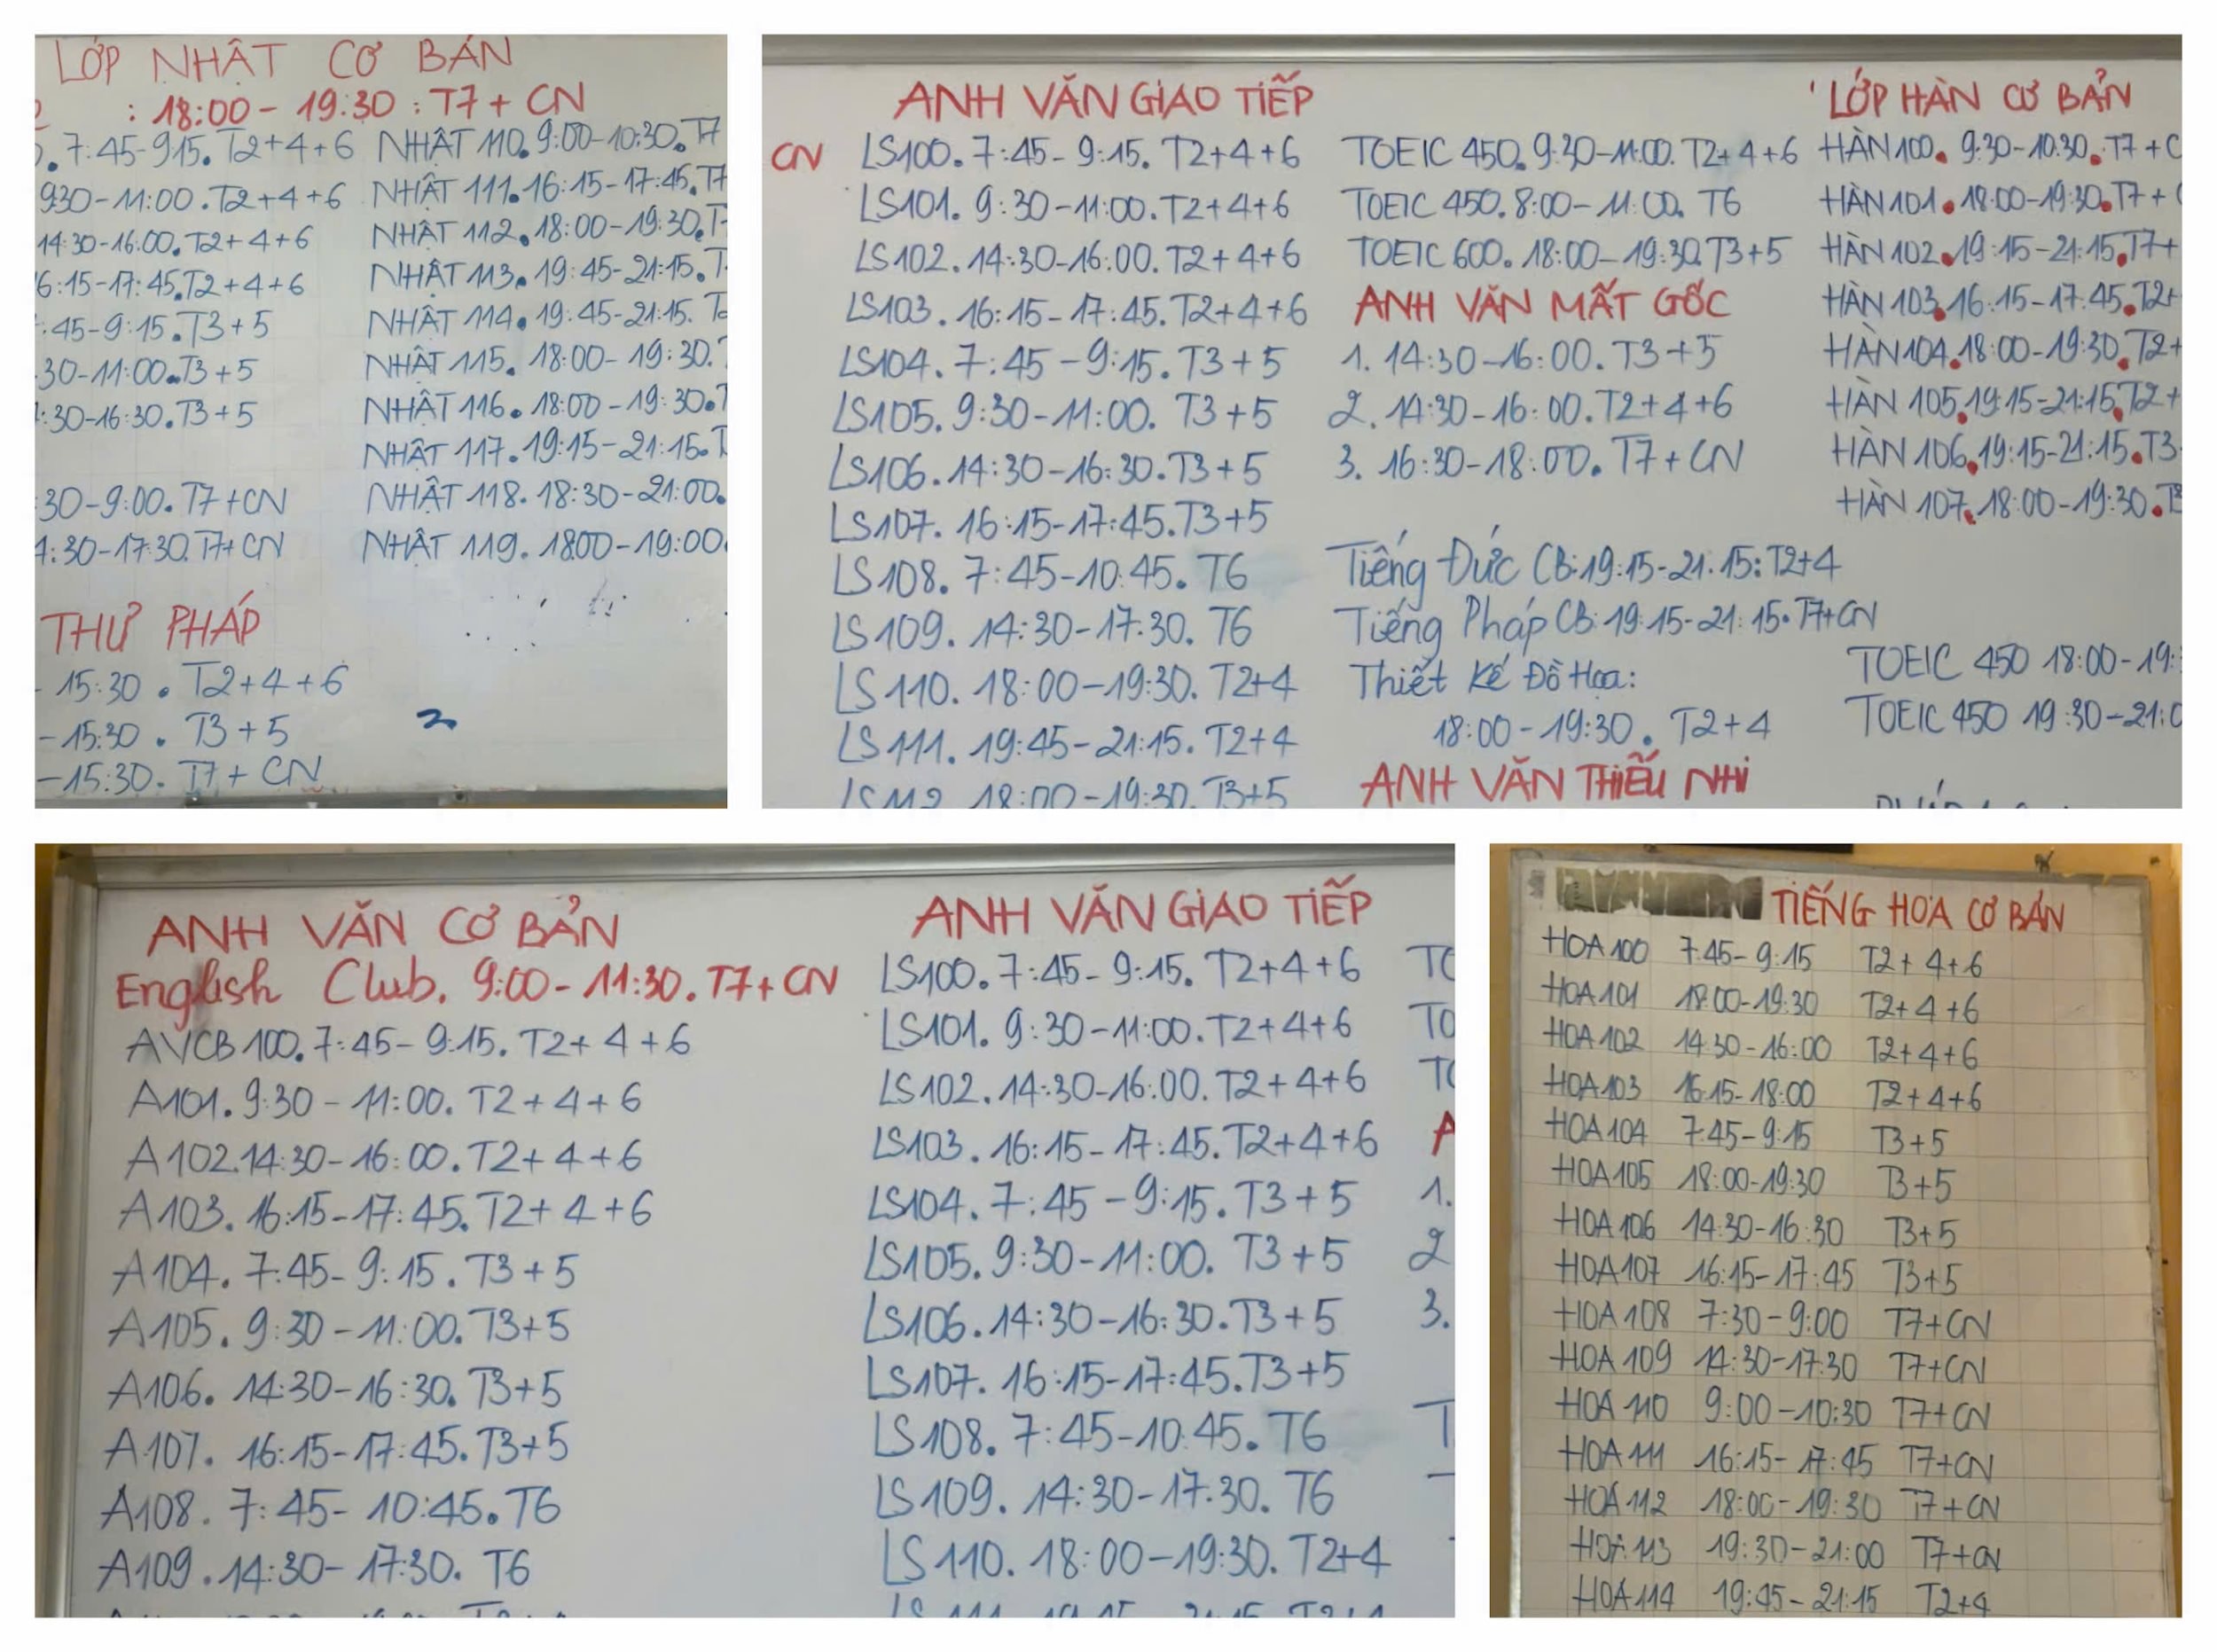 LỚP NHẬT CƠ BẢN
: 18:00 - 19:30 : T7 + CN
. 7:45-9:15. T2+4+6
9:30-11:00. T2+4+6
14:30-16:00. T2+4+6
6:15-17:45. T2+4+6
:45-9:15. T3+5
30-11:00. T3+5
:30-16:30. T3+5
30-9:00. T7+CN
4:30-17:30. T7+CN
NHẬT 110. 9:00-10:30. T7
NHẬT 111. 16:15-17:45. T7
NHẬT 112. 18:00-19:30. T
NHẬT 113. 19:45-21:15. T
NHẬT 114. 19:45-21:15. T2
NHẬT 115. 18:00-19:30.
NHẬT 116. 18:00-19:30. T
NHẬT 117. 19:15-21:15. T
NHẬT 118. 18:30-21:00.
NHẬT 119. 18:00-19:00.
THƯ PHÁP
- 15:30. T2+4+6
- 15:30. T3+5
- 15:30. T7+CN
CN
ANH VĂN GIAO TIẾP
LS100. 7:45-9:15. T2+4+6
LS101. 9:30-11:00. T2+4+6
LS102. 14:30-16:00. T2+4+6
LS103. 16:15-17:45. T2+4+6
LS104. 7:45-9:15. T3+5
LS105. 9:30-11:00. T3+5
LS106. 14:30-16:30. T3+5
LS107. 16:15-17:45. T3+5
LS108. 7:45-10:45. T6
LS109. 14:30-17:30. T6
LS110. 18:00-19:30. T2+4
LS111. 19:45-21:15. T2+4
LS112. 18:00-19:30. T3+5
TOEIC 450. 9:30-11:00. T2+4+6
TOEIC 450. 8:00-11:00. T6
TOEIC 600. 18:00-19:30. T3+5
ANH VĂN MẤT GỐC
1. 14:30-16:00. T3+5
2. 14:30-16:00. T2+4+6
3. 16:30-18:00. T7+CN
Tiếng Đức CB: 19:15-21:15: T2+4
Tiếng Pháp CB: 19:15-21:15. T7+CN
Thiết Kế Đồ Họa:
18:00-19:30. T2+4
ANH VĂN THIẾU NHI
LỚP HÀN CƠ BẢN
HÀN 100. 9:30-10:30. T7+C
HÀN 101. 18:00-19:30. T7+
HÀN 102. 19:15-21:15. T7+
HÀN 103. 16:15-17:45. T2+
HÀN 104. 18:00-19:30. T2+
HÀN 105. 19:15-21:15. T2+
HÀN 106. 19:15-21:15. T3
HÀN 107. 18:00-19:30. T3
TOEIC 450 18:00-19:
TOEIC 450 19:30-21:0
ANH VĂN CƠ BẢN
English Club. 9:00-11:30. T7+CN
AVCB 100. 7:45-9:15. T2+4+6
A101. 9:30-11:00. T2+4+6
A102. 14:30-16:00. T2+4+6
A103. 16:15-17:45. T2+4+6
A104. 7:45-9:15. T3+5
A105. 9:30-11:00. T3+5
A106. 14:30-16:30. T3+5
A107. 16:15-17:45. T3+5
A108. 7:45-10:45. T6
A109. 14:30-17:30. T6
ANH VĂN GIAO TIẾP
LS100. 7:45-9:15. T2+4+6
LS101. 9:30-11:00. T2+4+6
LS102. 14:30-16:00. T2+4+6
LS103. 16:15-17:45. T2+4+6
LS104. 7:45-9:15. T3+5
LS105. 9:30-11:00. T3+5
LS106. 14:30-16:30. T3+5
LS107. 16:15-17:45. T3+5
LS108. 7:45-10:45. T6
LS109. 14:30-17:30. T6
LS110. 18:00-19:30. T2+4
1.
2
3.
TIẾNG HOA CƠ BẢN
HOA 100 7:45-9:15 T2+4+6
HOA 101 18:00-19:30 T2+4+6
HOA 102 14:30-16:00 T2+4+6
HOA 103 16:15-18:00 T2+4+6
HOA 104 7:45-9:15 T3+5
HOA 105 18:00-19:30 T3+5
HOA 106 14:30-16:30 T3+5
HOA 107 16:15-17:45 T3+5
HOA 108 7:30-9:00 T7+CN
HOA 109 14:30-17:30 T7+CN
HOA 110 9:00-10:30 T7+CN
HOA 111 16:15-17:45 T7+CN
HOA 112 18:00-19:30 T7+CN
HOA 113 19:30-21:00 T7+CN
HOA 114 19:45-21:15 T2+4